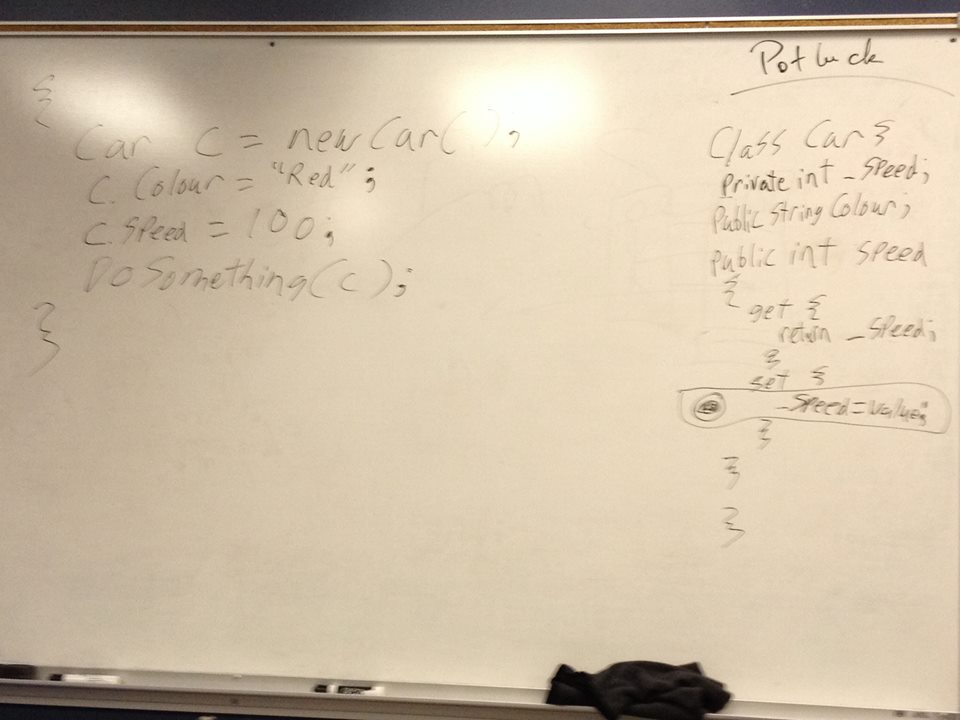 {
Car c = new Car();
c.Colour = "Red";
c.Speed = 100;
DoSomething(c);
}
Potluck
Class Car {
Private int _Speed;
Public String Colour;
Public int speed
{
get {
return _Speed;
}
set {
_Speed = value;
}
}
}